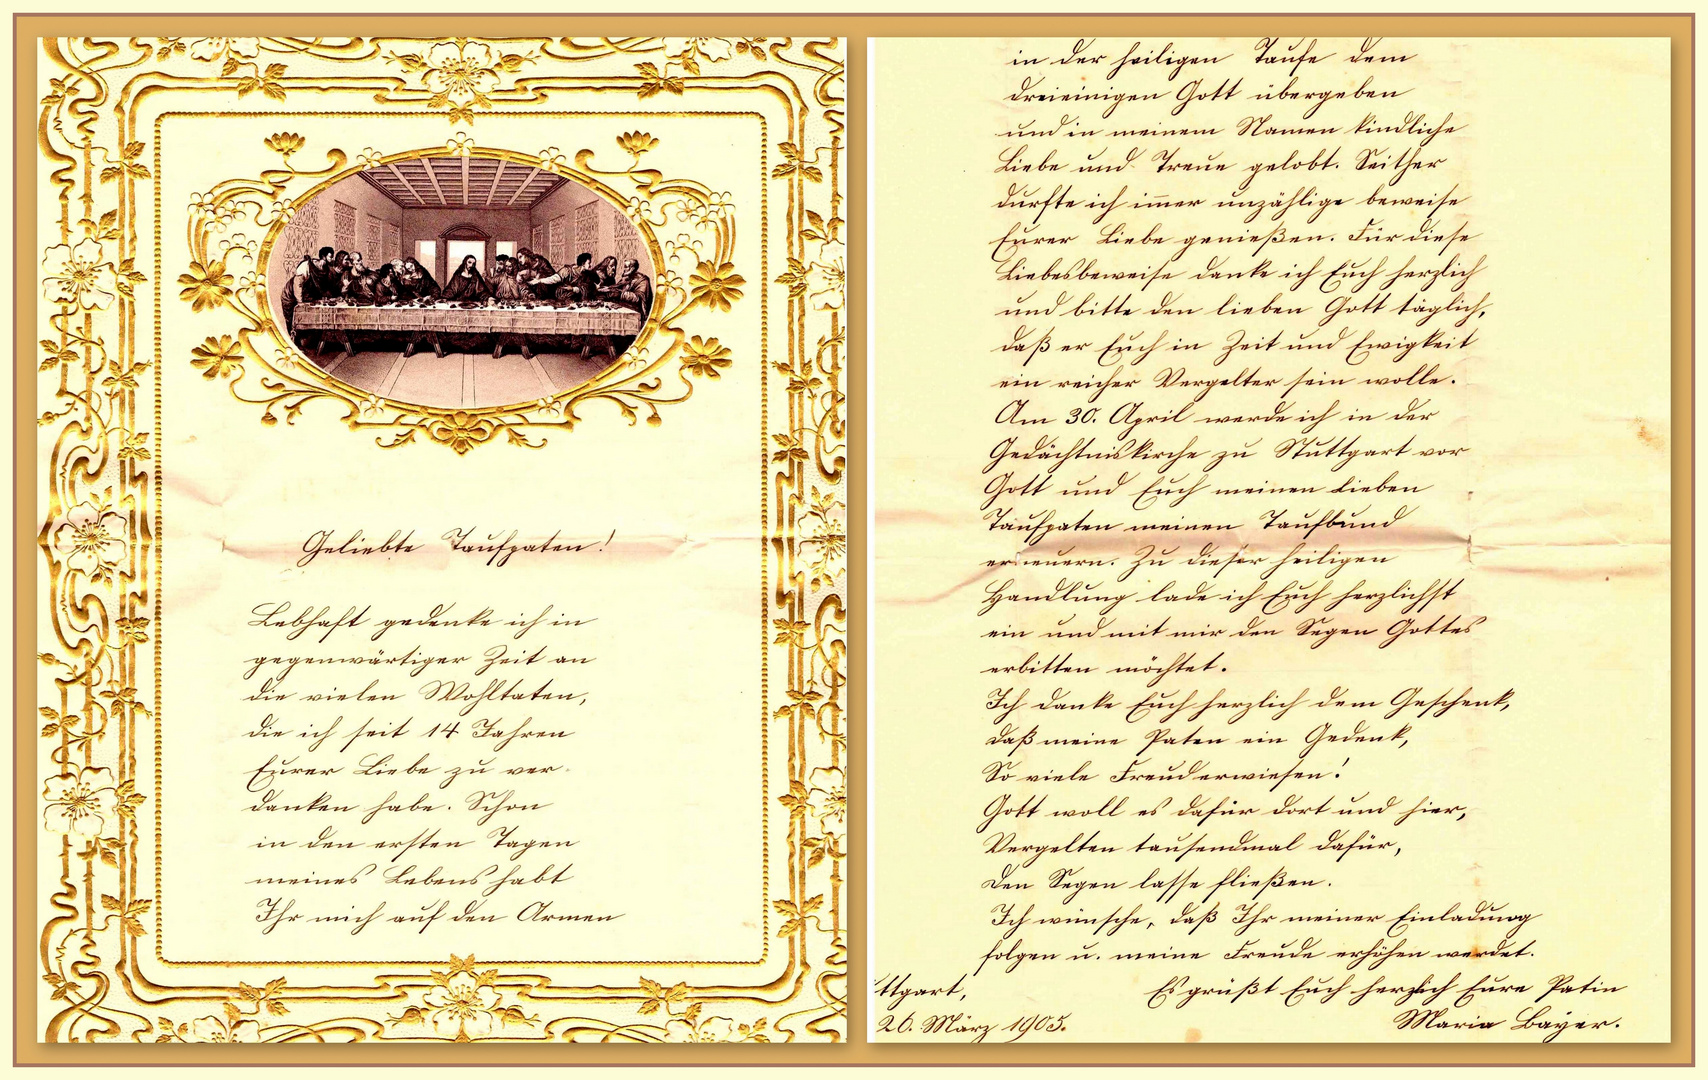 Geliebte Taufpaten!
Lebhaft gedenke ich in
gegenwärtiger Zeit an
die vielen Wohltaten,
die ich seit 14 Jahren
Eurer Liebe zu ver-
danken habe. Schon
in den ersten Tagen
meines Lebens habt
Ihr mich auf den Armen
in der heiligen Taufe dem
dreieinigen Gott übergeben
und in meinem Namen kindliche
Liebe und Treue gelobt. Seither
durfte ich immer unzählige beweise
Eurer Liebe genießen. Für diese
Liebesbeweise danke ich Euch herzlich
und bitte den lieben Gott täglich,
daß er Euch in Zeit und Ewigkeit
ein reicher Vergelter sein wolle.
Am 30. April werde ich in der
Gedächtniskirche zu Stuttgart vor
Gott und Euch meinen lieben
Taufpaten meinen Taufbund
erneuern. Zu dieser heiligen
Handlung lade ich Euch herzlichst
ein und mit mir den Segen Gottes
erbitten möchtet.
Ich danke Euch herzlich dem Geschenk,
daß meine Paten ein Gedenk,
So viele Freud erwiesen!
Gott woll es dafür dort und hier,
Vergelten tausendmal dafür,
Den Segen lasse fließen.
Ich wünsche, daß Ihr meiner Einladung
folgen u. meine Freude erhöhen werdet.
ttgart,
26. März 1905.
Es grüßt Euch herzlich Eure Patin
Maria Bayer.